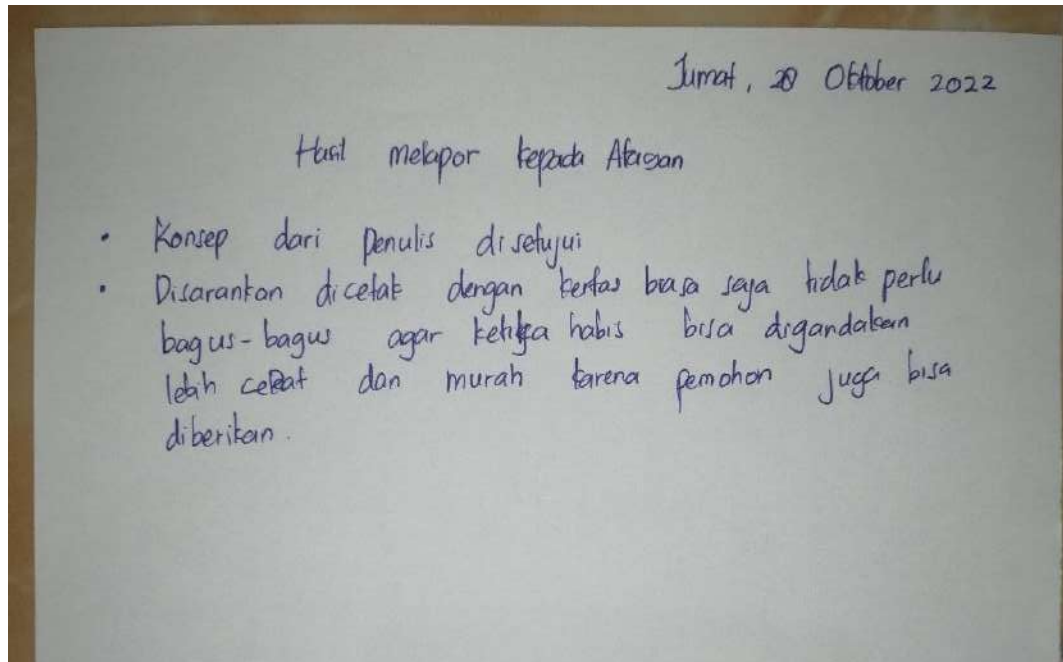 Jumat, 28 Oktober 2022
Hasil melapor kepada Atasan
• Konsep dari Penulis disetujui
• Disarankan dicetak dengan kertas biasa saja tidak perlu
bagus-bagus agar ketika habis bisa digandakan
lebih cepat dan murah karena pemohon juga bisa
diberikan.